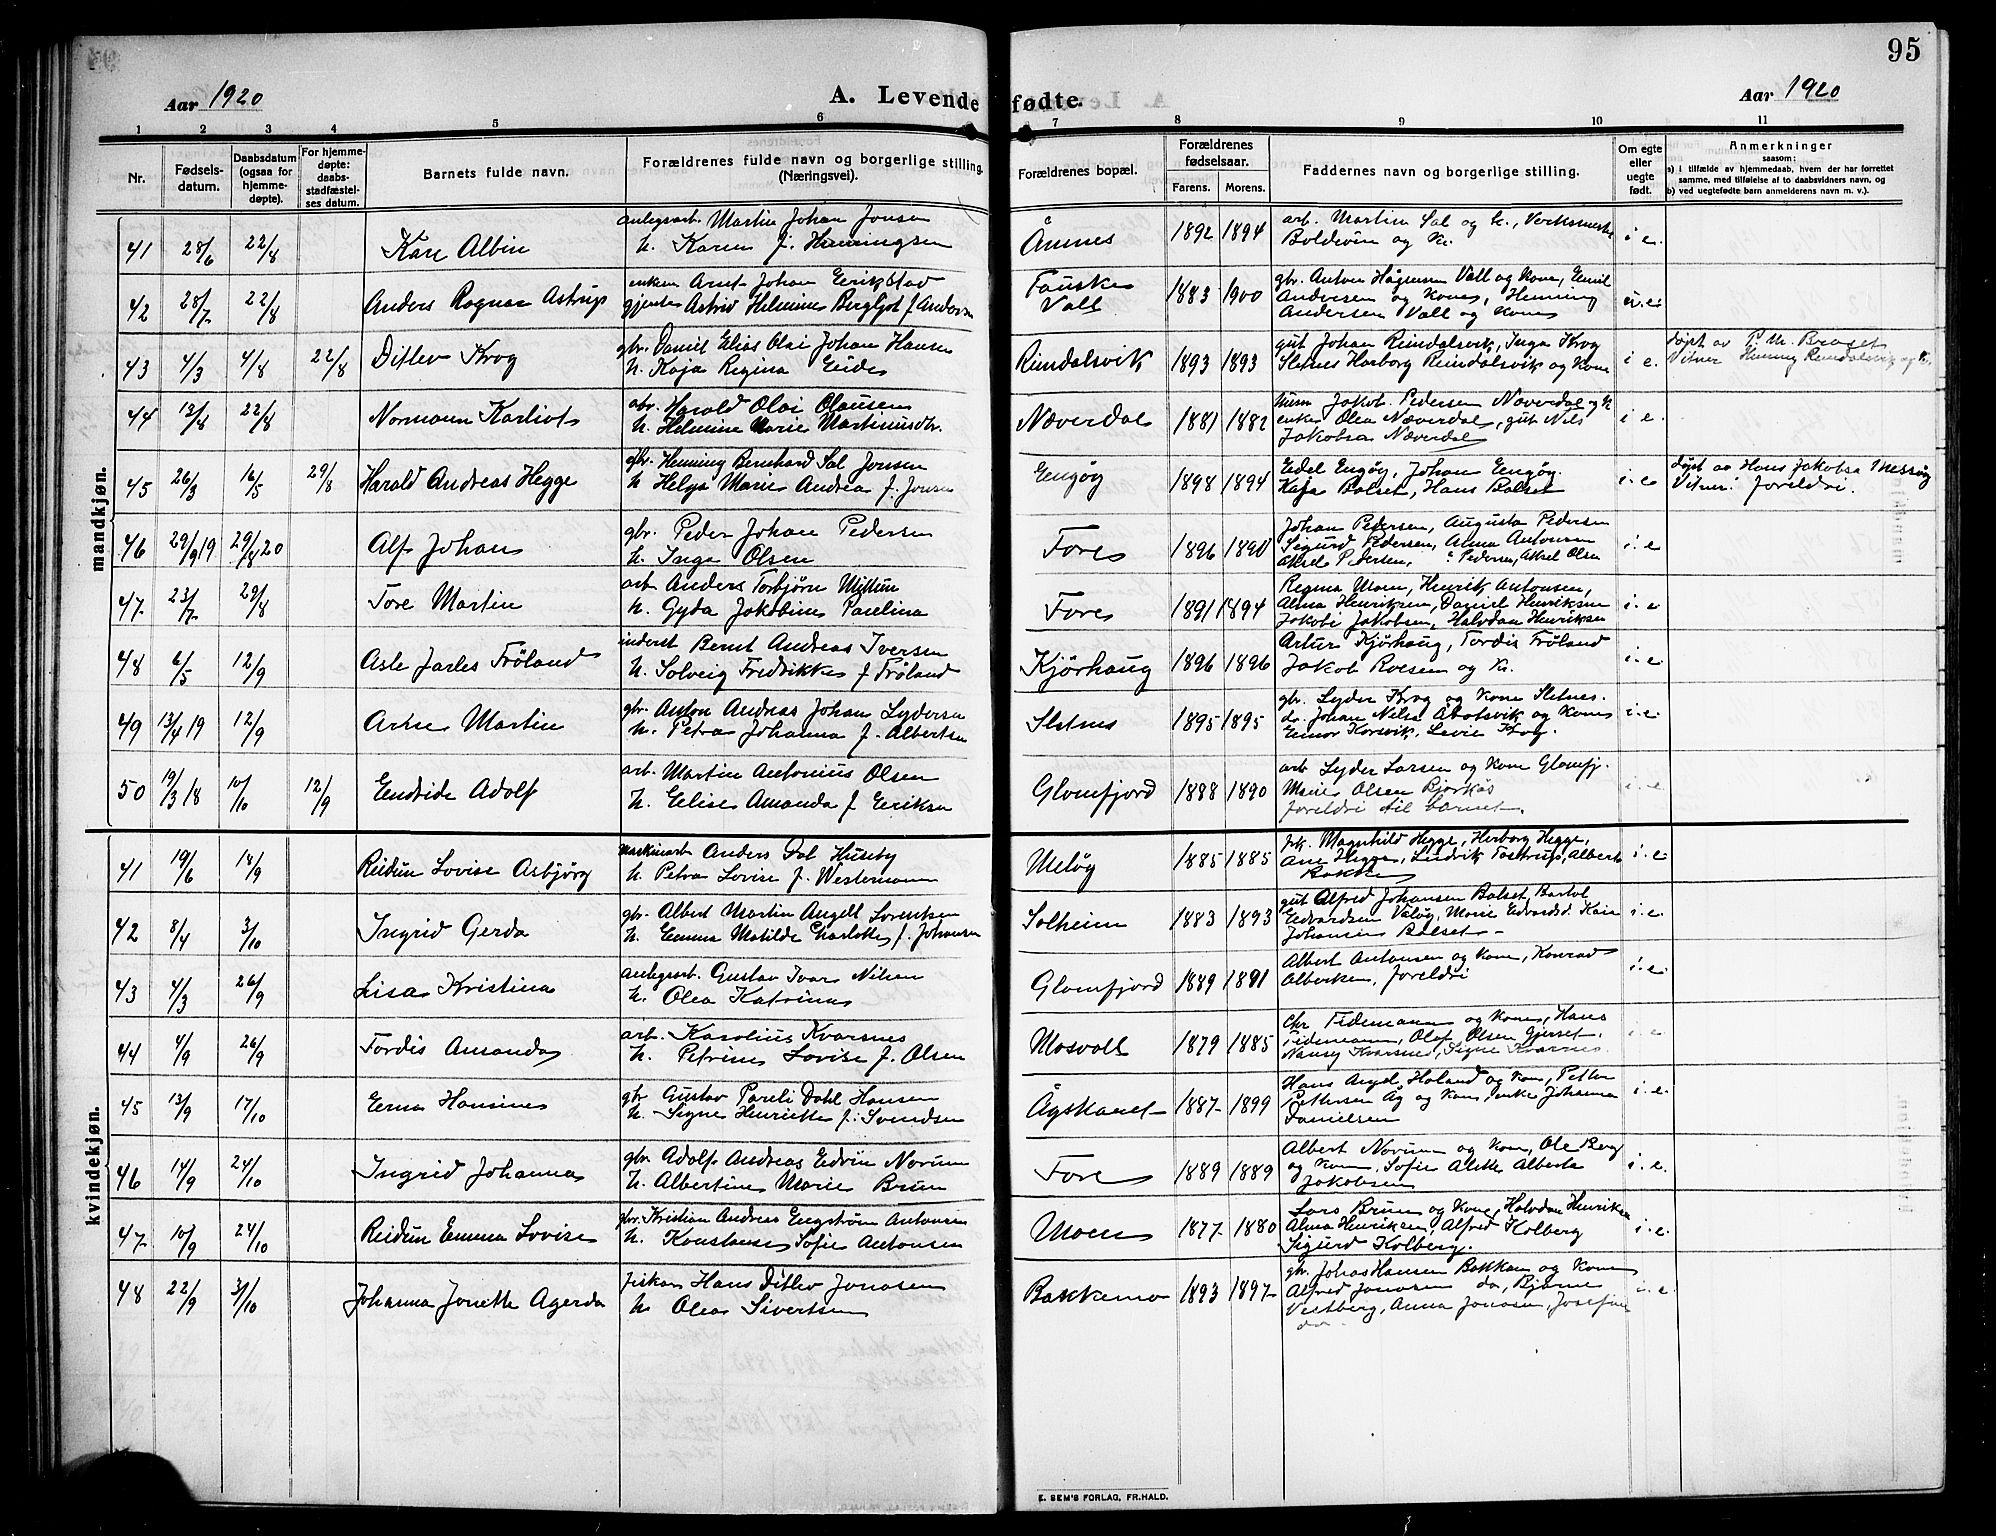 95
Aar 1920
A. Levende fødte.
Aar 1920
1 2 3 4 5 6 7 8 9 10 11
Nr.
Fødsels-
datum.
Daabsdatum
(ogsaa for
hjemme-
døpte).
For hjemme-
døpte:
daabs-
stadfæstel-
ses datum.
Barnets fulde navn.
Forældrenes fulde navn og borgerlige stilling.
(Næringsvei).
Forældrenes bopæl.
Forældrenes
fødselsaar.
Farens. Morens.
Faddernes navn og borgerlige stilling.
Om egte
eller
uegte
født.
Anmerkninger
saasom:
a) I tilfælde av hjemmedaab, hvem der har forrettet
samme, med tilføielse af to daabsvidners navn, og
b) ved uegtefødte barn anmelderens navn m. v.).
mandkjøn.
41 28/6 22/8 Kåre Albin
anlegsarb. Martin Johan Jonsen
h. Karen f. Henningsen
Åmnes 1892 1894
arb. Martin Sal og k., Verksmester
Boldevin og k.
i. e.
42 28/7 22/8 Anders Ragnar Astrup
enkem Arnt Johan Erikstad
gjente Astrid Helmine Bergljot f. Andersen
Fauske
Vall
1883 1900
gbr. Anton Hågensen Vall og kone, Emil
Andersen og kone, Henning
Andersen Vall og kone
u. e.
43 4/3 4/8 22/8 Ditlev Krog
gbr. Daniel Elias Olai Johan Hansen
h. Kaja Regina Eides
Reindalsvik 1893 1893
gut Johan Reindalsvik, Inga Krog
Sletnes Harborg Reindalsvik og kone
i e.
døpt av P. M. Braset
Vitner Henning Reindalsvik og k.
44 13/8 22/8 Normann Karliot
abr. Harald Olai Olausen
h. Helmine Marie Martinusdtr.
Næverdal 1881 1882
husm Jakob Pedersen Næverdal og k
enke Olea Næverdal, gut Nils
Jakobsa Næverdal
i e.
45 26/3 16/5 29/8 Harald Andreas Hegge
gbr. Henning Bernhard Sal Jensen
h Helga Marie Andrea f. Jensen
Engøy 1898 1894
Edel Engøy, Johan Engøy.
Kaja Bolset, Hans Bolset
i. e
døpt av Hans Jakobsa Messøy
Vitner: foreldri.
46 29/9 19 29/8 20 Alf Johan
gbr. Peder Johan Pedersen
h. Inga Olsen
Fore 1896 1890
Johan Pedersen, Augusta Pedersen
Sigurd Pedersen, Anna Antonsen
Aksel Pedersen, Pedersen, Aksel Olsen
i. e
47. 23/7 29/8 Tore Martin
arb Anders Torbjørn Mittun
h. Gyda Jakobine Paulina
Fore 1891 1894
Regina Moen, Henrik Antonsen,
Alma Henriksen, Daniel Henriksen
Jakobi Jakobsen, Halvdan Henriksen
i. e
48 6/5 12/9 Asle Jarles Frøland
inderst Bernt Andreas Iversen
h. Solveig Fredrikke f Frøland
Kjørhaug 1896 1896
Artur Kjørhaug, Tordis Frøland
Jakob Roesen og k.
i. e.
49 13/4 19 12/9 Arne Martin
gbr. Anton Andreas Johan Lydersen
h. Petra Johanna f. Albertsen
Sletnes 1895 1895
gbr. Lyder Krog og kone Sletnes.
do. Johan Nilsa Åbotsvik og kone
Einor Korsvik, Levie Krog.
i. e.
50 19/3 18 10/10 12/9 Endride Adolf
arb. Martin Antonius Olsen
h. Elise Amanda f Eriksen
Glomfjord 1888 1890
arb Lyder Larsen og kone Glomfj.
Marie Olsen Bjørkås
foreldri til barnet.
i. e.
kvindekjøn.
41 19/6 14/9 Reidun Lovise Asbjørg
maskinarb Anders Dal Huseby
h Petra Lovise f. Westermann
Meløy 1885 1885
frk. Magnhild Hegge, Herborg Hegge,
Ane Hegge, Ludvik Tostrup, Albert
Bakke
i. e
42 8/4 3/10 Ingrid Gerda
gbr. Albert Martin Angell Lorentsen
h. Emma Matilde Charlotte f. Johansen
Solheim 1883 1893
gut Alfred Johansen Bolset, Bartol
Edvardsen Valøy, Marie Edvardsd. Kaia
Johansen Bolset
i. e.
43 4/3 26/9 Lisa Kristina
anlegsarb. Gustav Ivar Nilsen
h. Olea Katrina
Glomfjord 1889 1891
Albert Antonsen og kone, Konrad
Alberken, foreldri
i. e.
44 4/9 26/9 Tordis Amanda
arb. Karolius Kvarsnes
h. Petrine Lovise f. Olsen
Mosvoll 1879 1885
Chr. Tidemann og kone, Hans
Tidemann, Olaf Olsen Gjerset.
Nansy Kvarsnes, Signe Kvarnes
i. e
45 13/9 17/10 Erna Hansine
gbr Gustav Pareli Dahl Hansen
h. Signe Henriette f. Svendsen
Ågskaret 1887 1899
Hans Angel, Holand og kone, Petter
Pettersen Åg og kone, enke Johanna
Danielsen
i. e.
46 14/9 24/10 Ingrid Johanna
gbr. Adolf Andreas Edvin Norum
h. Albertine Marie Brun
Fore 1889 1889
Albert Norum og kone, Ole Berg
og kone, Sofie Alette Alberta
Jakobsen
i. e.
47. 10/9 24/10 Reidun Emma Lovise
gbr. Kristian Andreas Engstrøm Antonsen
h. Konstanse Sofie Antonsen
Moen 1877 1880
Lars Brun og kone, Halvdan Henriksen
Alma Henriksen, Alfred Kolberg
Sigurd Kolberg.
i. e.
48 22/9 31/10 Johanna Jonette Agerda
fiskar Hans Ditlev Jonasen
h. Olea Sivertsen
Bakkemo 1893 1897
gbr. Johas Hansen Bakkan og kone
Alfred Jonasen do, Bjarne
Vestberg, Anna Jonasen, Josefine
do
i. e.
E. SEM'S FORLAG, FR.HALD.